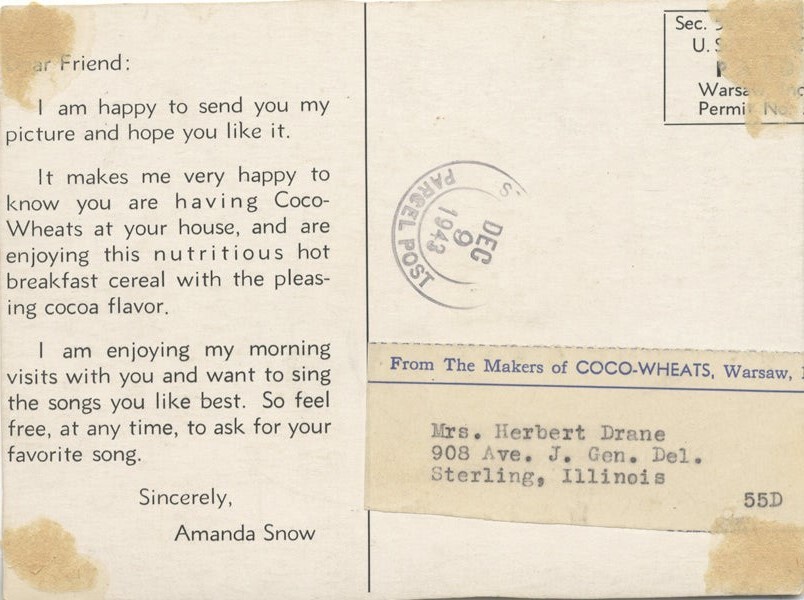 Friend:
I am happy to send you my
picture and hope you like it.
It makes me very happy to
know you are having Coco-
Wheats at your house, and are
enjoying this nutritious hot
breakfast cereal with the pleas-
ing cocoa flavor.
I am enjoying my morning
visits with you and want to sing
the songs you like best. So feel
free, at any time, to ask for your
favorite song.
Sincerely,
Amanda Snow
Sec.
U. S.
Permit No.
PARCEL POST
DEC
9
1943
From The Makers of COCO-WHEATS, Warsaw,
Mrs. Herbert Drane
908 Ave. J. Gen. Del.
Sterling, Illinois
55D